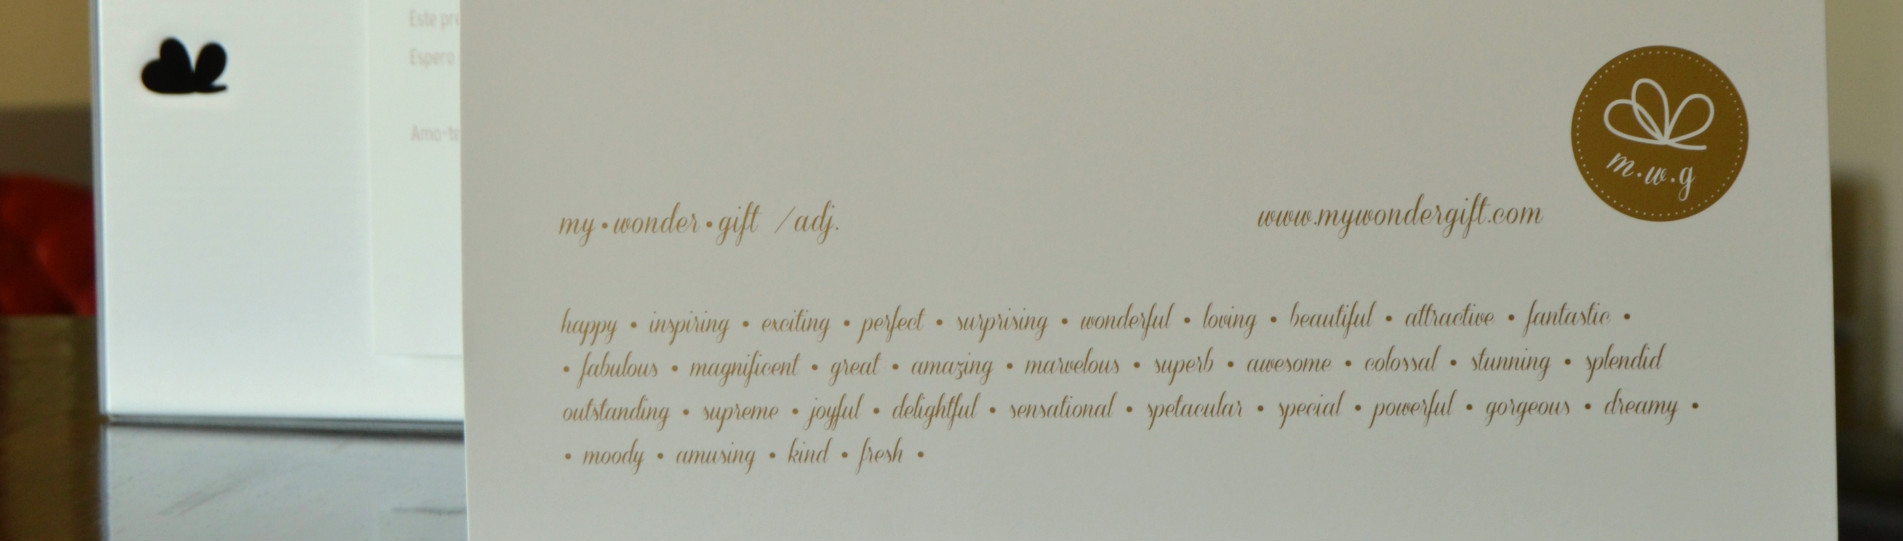 Este
Espero
Amo-te
m.w.g
my•wonder•gift /adj.
www.mywondergift.com
happy • inspiring • exciting • perfect • surprising • wonderful • loving • beautiful • attractive • fantastic •
• fabulous • magnificent • great • amazing • marvelous • superb • awesome • colossal • stunning • splendid
outstanding • supreme • joyful • delightful • sensational • spetacular • special • powerful • gorgeous • dreamy •
• moody • amusing • kind • fresh •